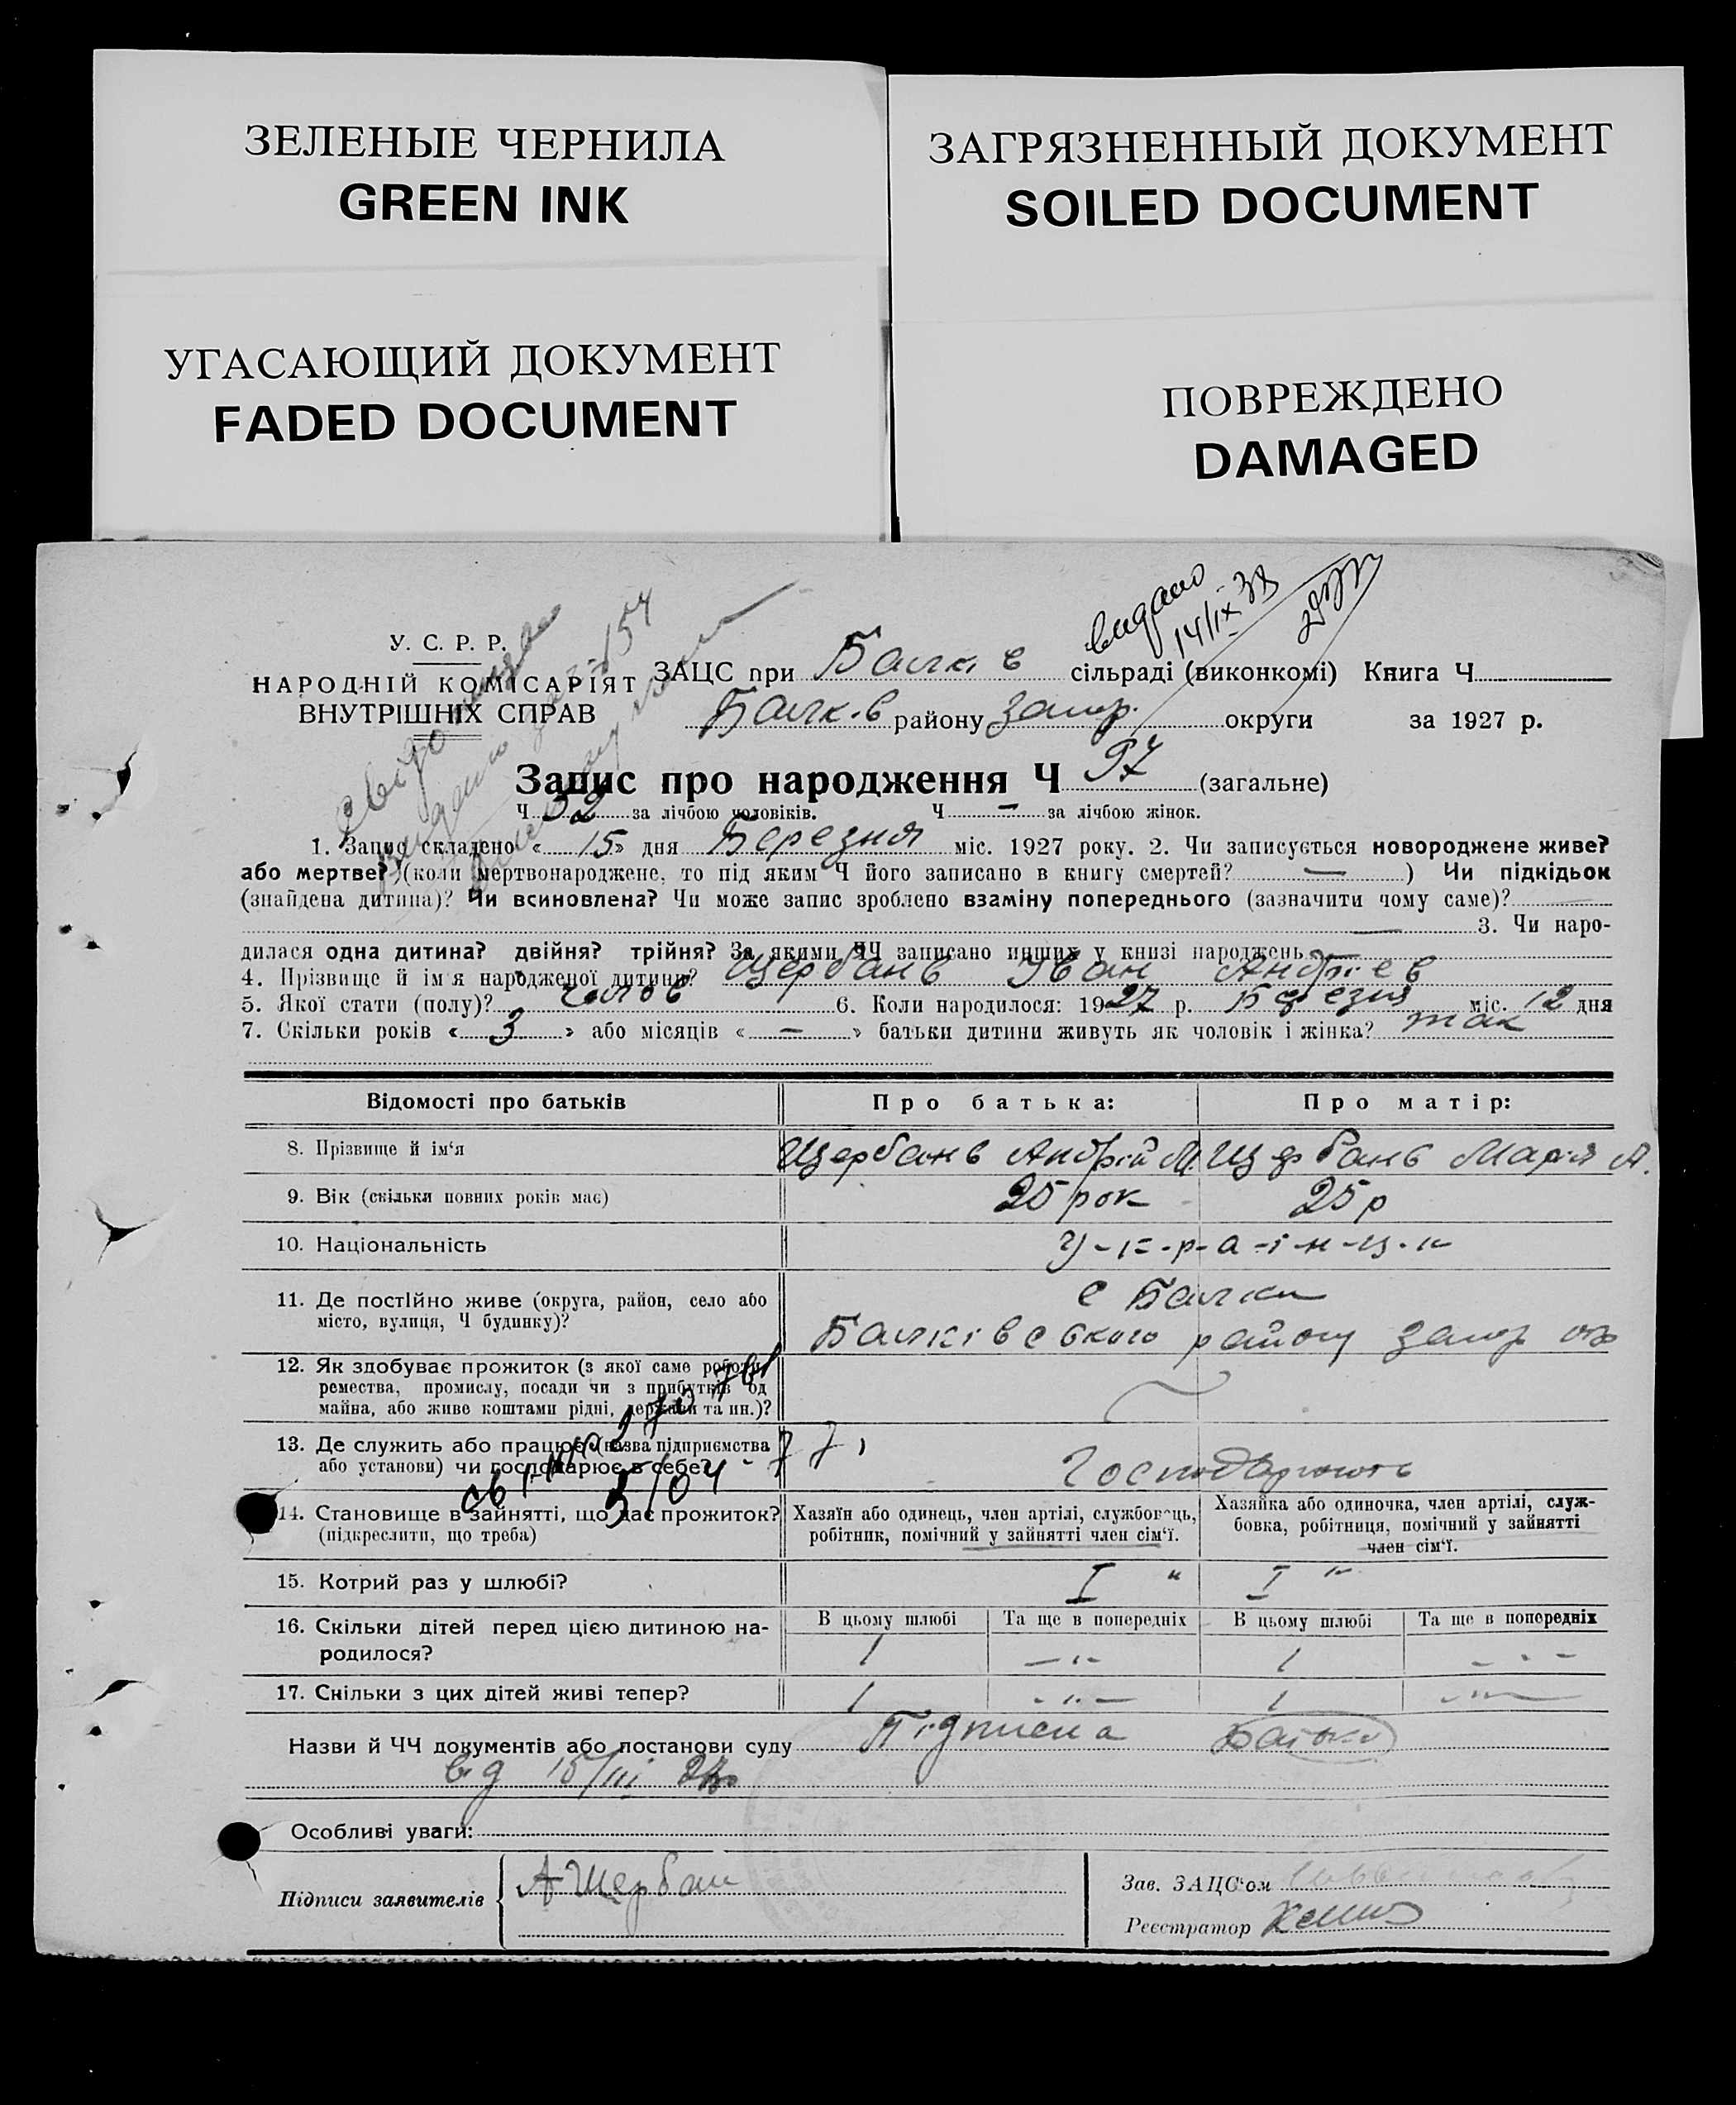 ЗЕЛЕНЫЕ ЧЕРНИЛА
GREEN INK
УГАСАЮЩИЙ ДОКУМЕНТ
FADED DOCUMENT
ЗАГРЯЗНЕННЫЙ ДОКУМЕНТ
SOILED DOCUMENT
ПОВРЕЖДЕНО
DAMAGED
видано
14/IX 38
У. С. Р. Р.
НАРОДНІЙ КОМІСАРІЯТ
ВНУТРІШНІХ СПРАВ
ЗАЦС при Балків сільраді (виконкомі) Книга Ч
Балк-в району Запор. округи за 1927 р.
Запис про народження Ч 97 (загальне)
Ч 52 за лічбою чоловіків. Ч — за лічбою жінок.
1. Запис складено « 15 » дня Березня міс. 1927 року. 2. Чи записується новороджене живе?
або мертве? (коли мертвонароджене, то під яким Ч його записано в книгу смертей? — ) Чи підкідьок
(знайдена дитина)? Чи всиновлена? Чи може запис зроблено взаміну попереднього (зазначити чому саме)?
— 3. Чи наро-
дилася одна дитина? двійня? трійня? За якими ЧЧ записано инших у книзі народжень
4. Прізвище й ім'я народженої дитини? Щербанв Іван Андріев
5. Якої стати (полу)? чолов 6. Коли народилося: 1927 р. Березня міс. 12 дня
7. Скільки років « 3 » або місяців « — » батьки дитини живуть як чоловік і жінка? так
Відомості про батьків Про батька: Про матір:
8. Прізвище й ім'я Щербанв Андрій М. Щербанв Марія А.
9. Вік (скільки повних років має) 25 рок 25 р
10. Національність У-к-р-а-і-н-ц-и
11. Де постійно живе (округа, район, село або
місто, вулиця, Ч будинку)?
с Балки
Балківського району Запор
12. Як здобуває прожиток (з якої саме роботи,
ремества, промислу, посади чи з прибутків од
майна, або живе коштами рідні, держави та ин.)?
13. Де служить або працює (назва підприємства
або установи) чи господарює в себе?
Господарюють
14. Становище в зайнятті, що дає прожиток?
(підкреслити, що треба)
Хазяїн або одинець, член артілі, службовець,
робітник, помічний у зайнятті член сім'ї.
Хазяйка або одиночка, член артілі, служ-
бовка, робітниця, помічний у зайнятті
член сім'ї.
15. Котрий раз у шлюбі? I " I "
16. Скільки дітей перед цією дитиною на-
родилося?
В цьому шлюбі Та ще в попередніх В цьому шлюбі Та ще в попередніх
1 — 1 —
17. Скільки з цих дітей живі тепер? 1 — 1 —
Назви й ЧЧ документів або постанови суду Підписка батьки
від 15/III 27
Особливі уваги:
Підписи заявителів А Щербан
Зав. ЗАЦС'ом
Реєстратор